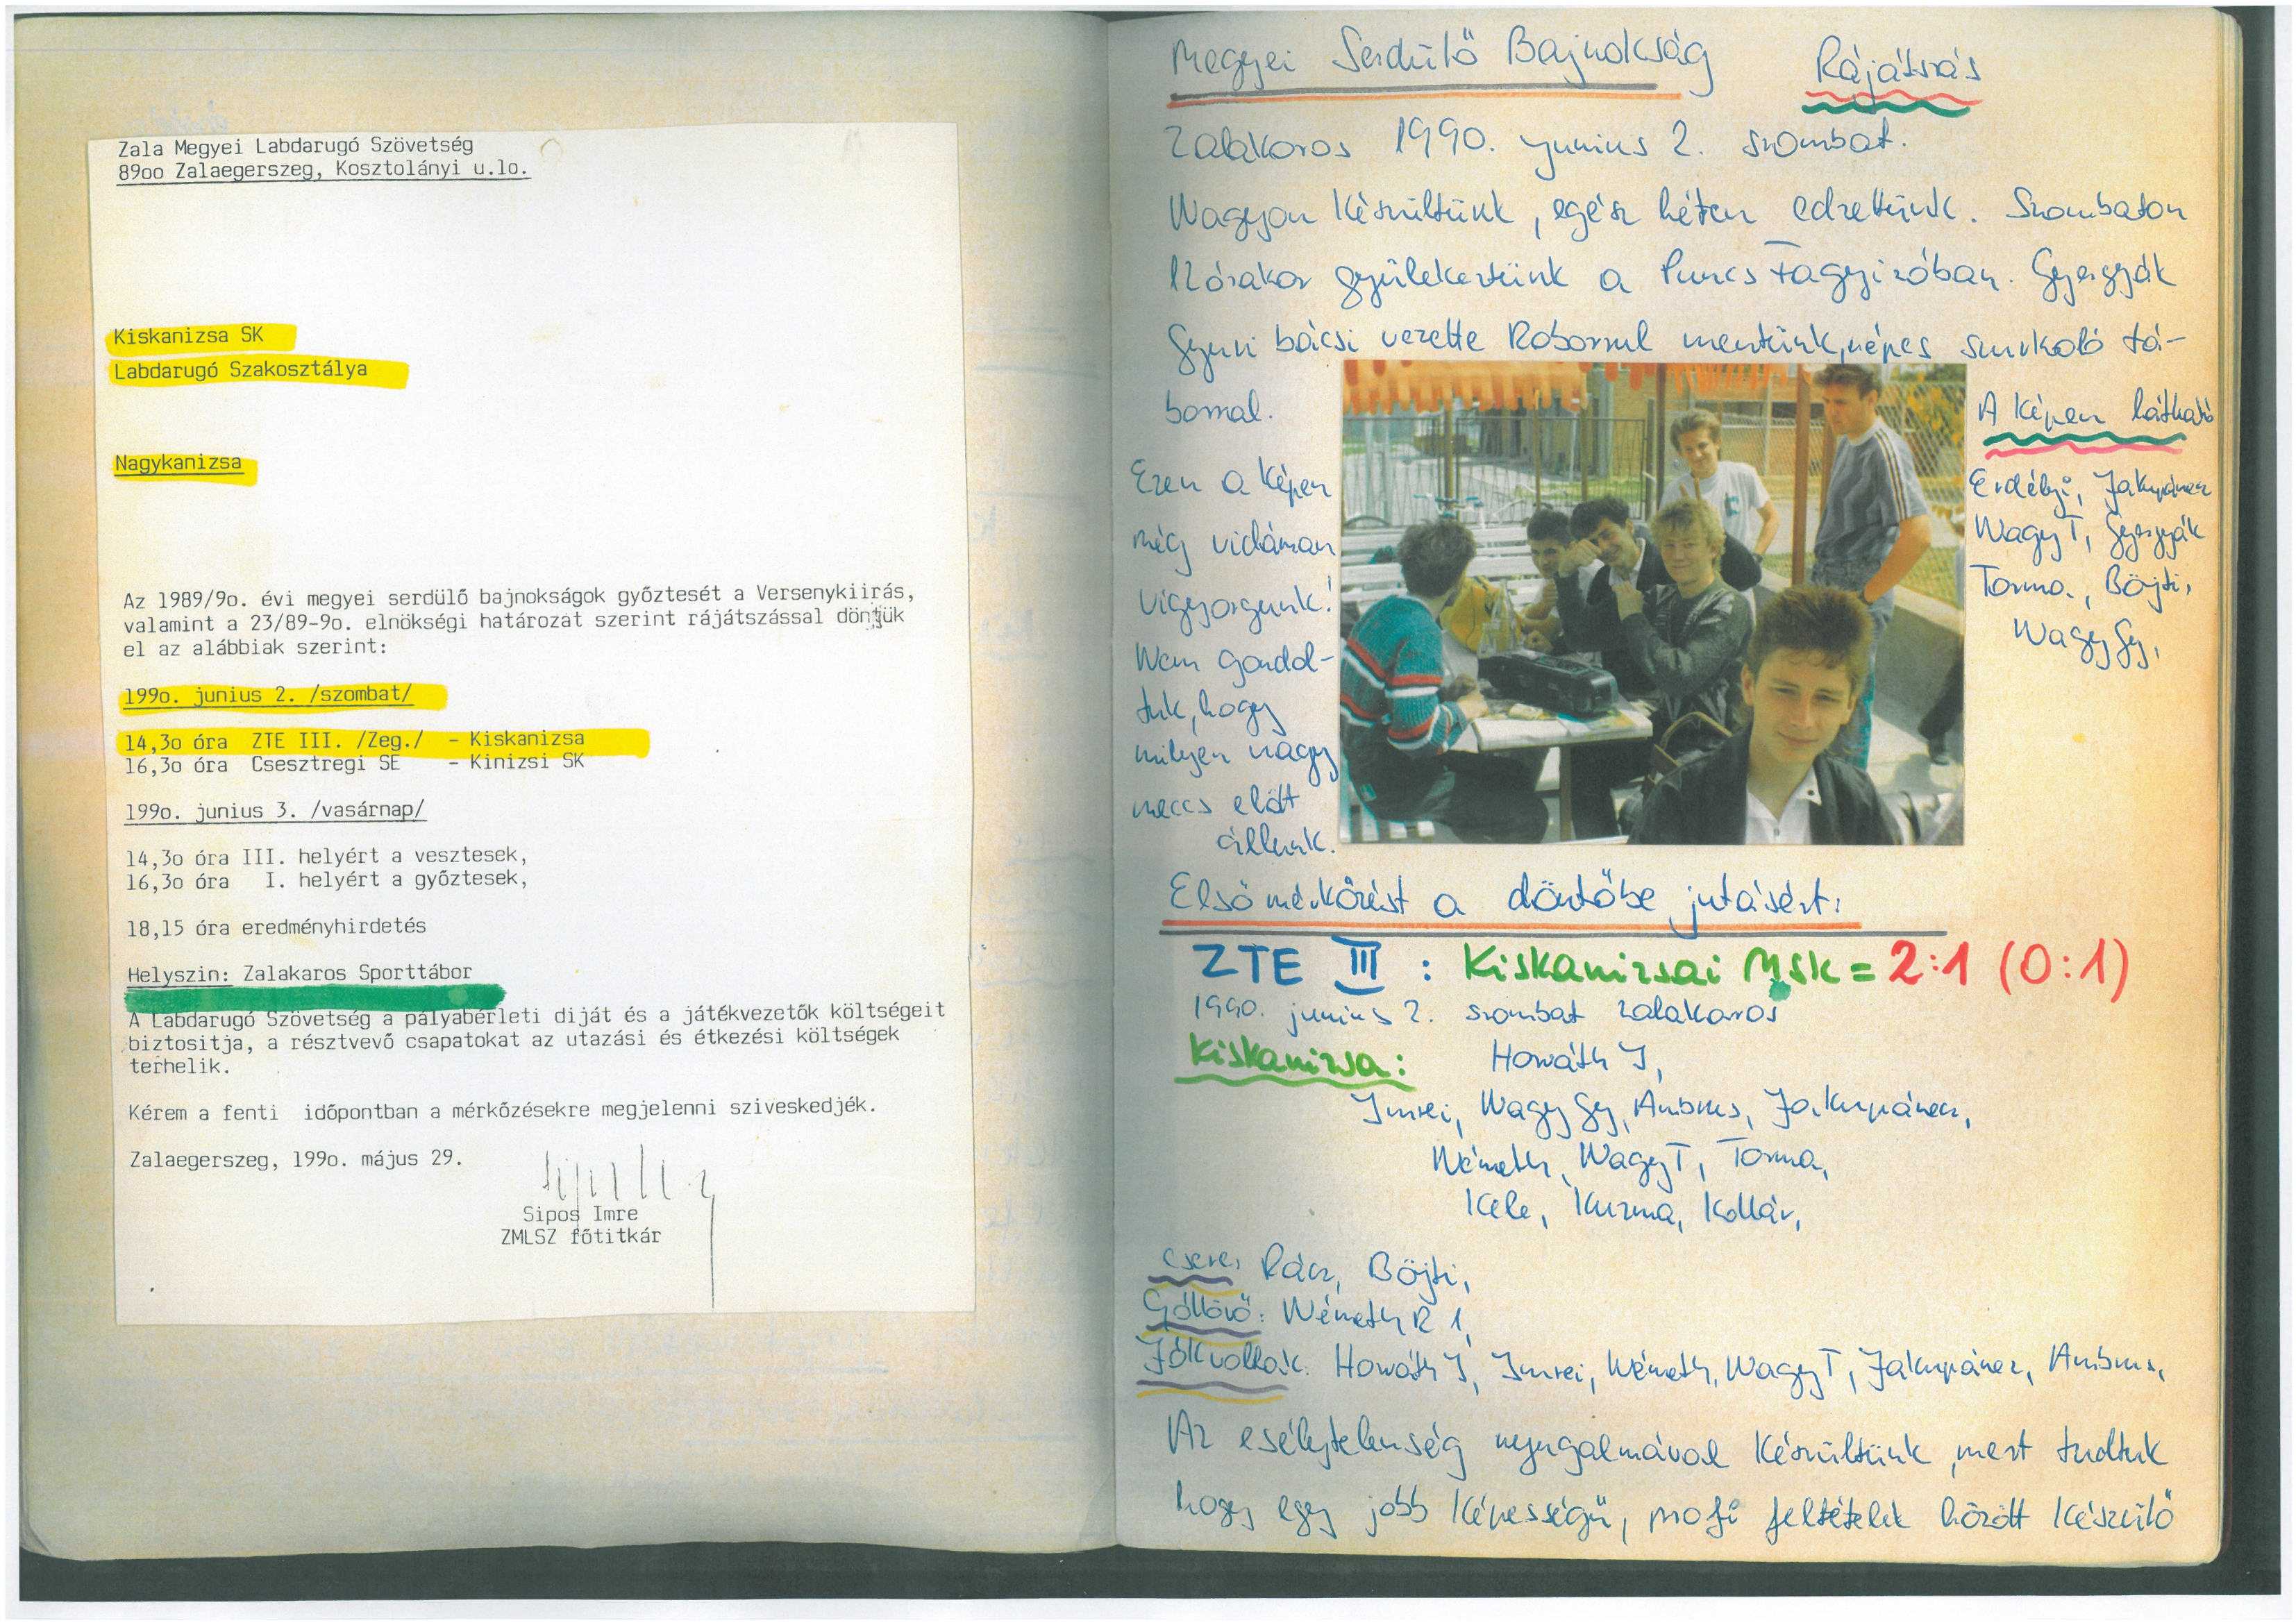 Zala Megyei Labdarugó Szövetség
89oo Zalaegerszeg, Kosztolányi u.lo.
Kiskanizsa SK
Labdarugó Szakosztálya
Nagykanizsa
Az 1989/9o. évi megyei serdülő bajnokságok győztesét a Versenykiirás,
valamint a 23/89-9o. elnökségi határozat szerint rájátszással döntjük
el az alábbiak szerint:
199o. junius 2. /szombat/
14,3o óra ZTE III. /Zeg./ - Kiskanizsa
16,3o óra Csesztregi SE - Kinizsi SK
199o. junius 3. /vasárnap/
14,3o óra III. helyért a vesztesek,
16,3o óra I. helyért a győztesek,
18,15 óra eredményhirdetés
Helyszin: Zalakaros Sporttábor
A Labdarugó Szövetség a pályabérleti diját és a játékvezetők költségeit
biztositja, a résztvevő csapatokat az utazási és étkezési költségek
terhelik.
Kérem a fenti időpontban a mérkőzésekre megjelenni sziveskedjék.
Zalaegerszeg, 199o. május 29.
Sipos Imre
ZMLSZ főtitkár
Megyei Serdülő Bajnokság Rájátszás
Zalakaros 1990. junius 2. szombat.
Nagyon készültünk, egész héten edzettünk. Szombaton
12órakor gyülekeztünk a Puncs Fagyizóban. Gyergyák
Gyuri bácsi vezette Roburral mentünk, népes szurkoló tá-
borral.
A képen látható
Erdélyi, Jakupánecz
Nagy T, Gyergyák
Torma, Böjti,
Nagy Gy,
Ezen a képen
még vidáman
vigyorgunk!
Nem gondol-
tuk, hogy
milyen nagy
meccs előtt
állunk.
Első mérkőzést a döntőbe jutásért:
ZTE III : Kiskanizsai MSK = 2:1 (0:1)
1990. junius 2. szombat Zalakaros
Kiskanizsa: Horváth J,
Imrei, Nagy Gy, Ambrus, Jakupánecz,
Németh, Nagy T, Torma,
Kele, Kuzma, Kollár,
Csere: Rácz, Böjti,
Góllövő: Németh R 1,
Jók voltak: Horváth J, Imrei, Németh, Nagy T, Jakupánecz, Ambrus,
Az esélytelenség nyugalmával készültünk, mert tudtuk
hogy egy jobb képességű, profi feltételek között készülő